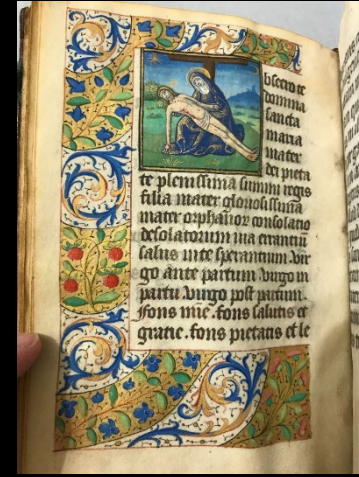 bsecro te
domina
sancta
maria
mater
dei pieta
te plenissima summi regis
filia mater gloriosissima
mater orphanor consolatio
desolatorum via errantiū
salus in te sperantium. vir
go ante partum virgo in
partu virgo post partum.
fons mie. fons salutis et
gratie. fons pietatis et le